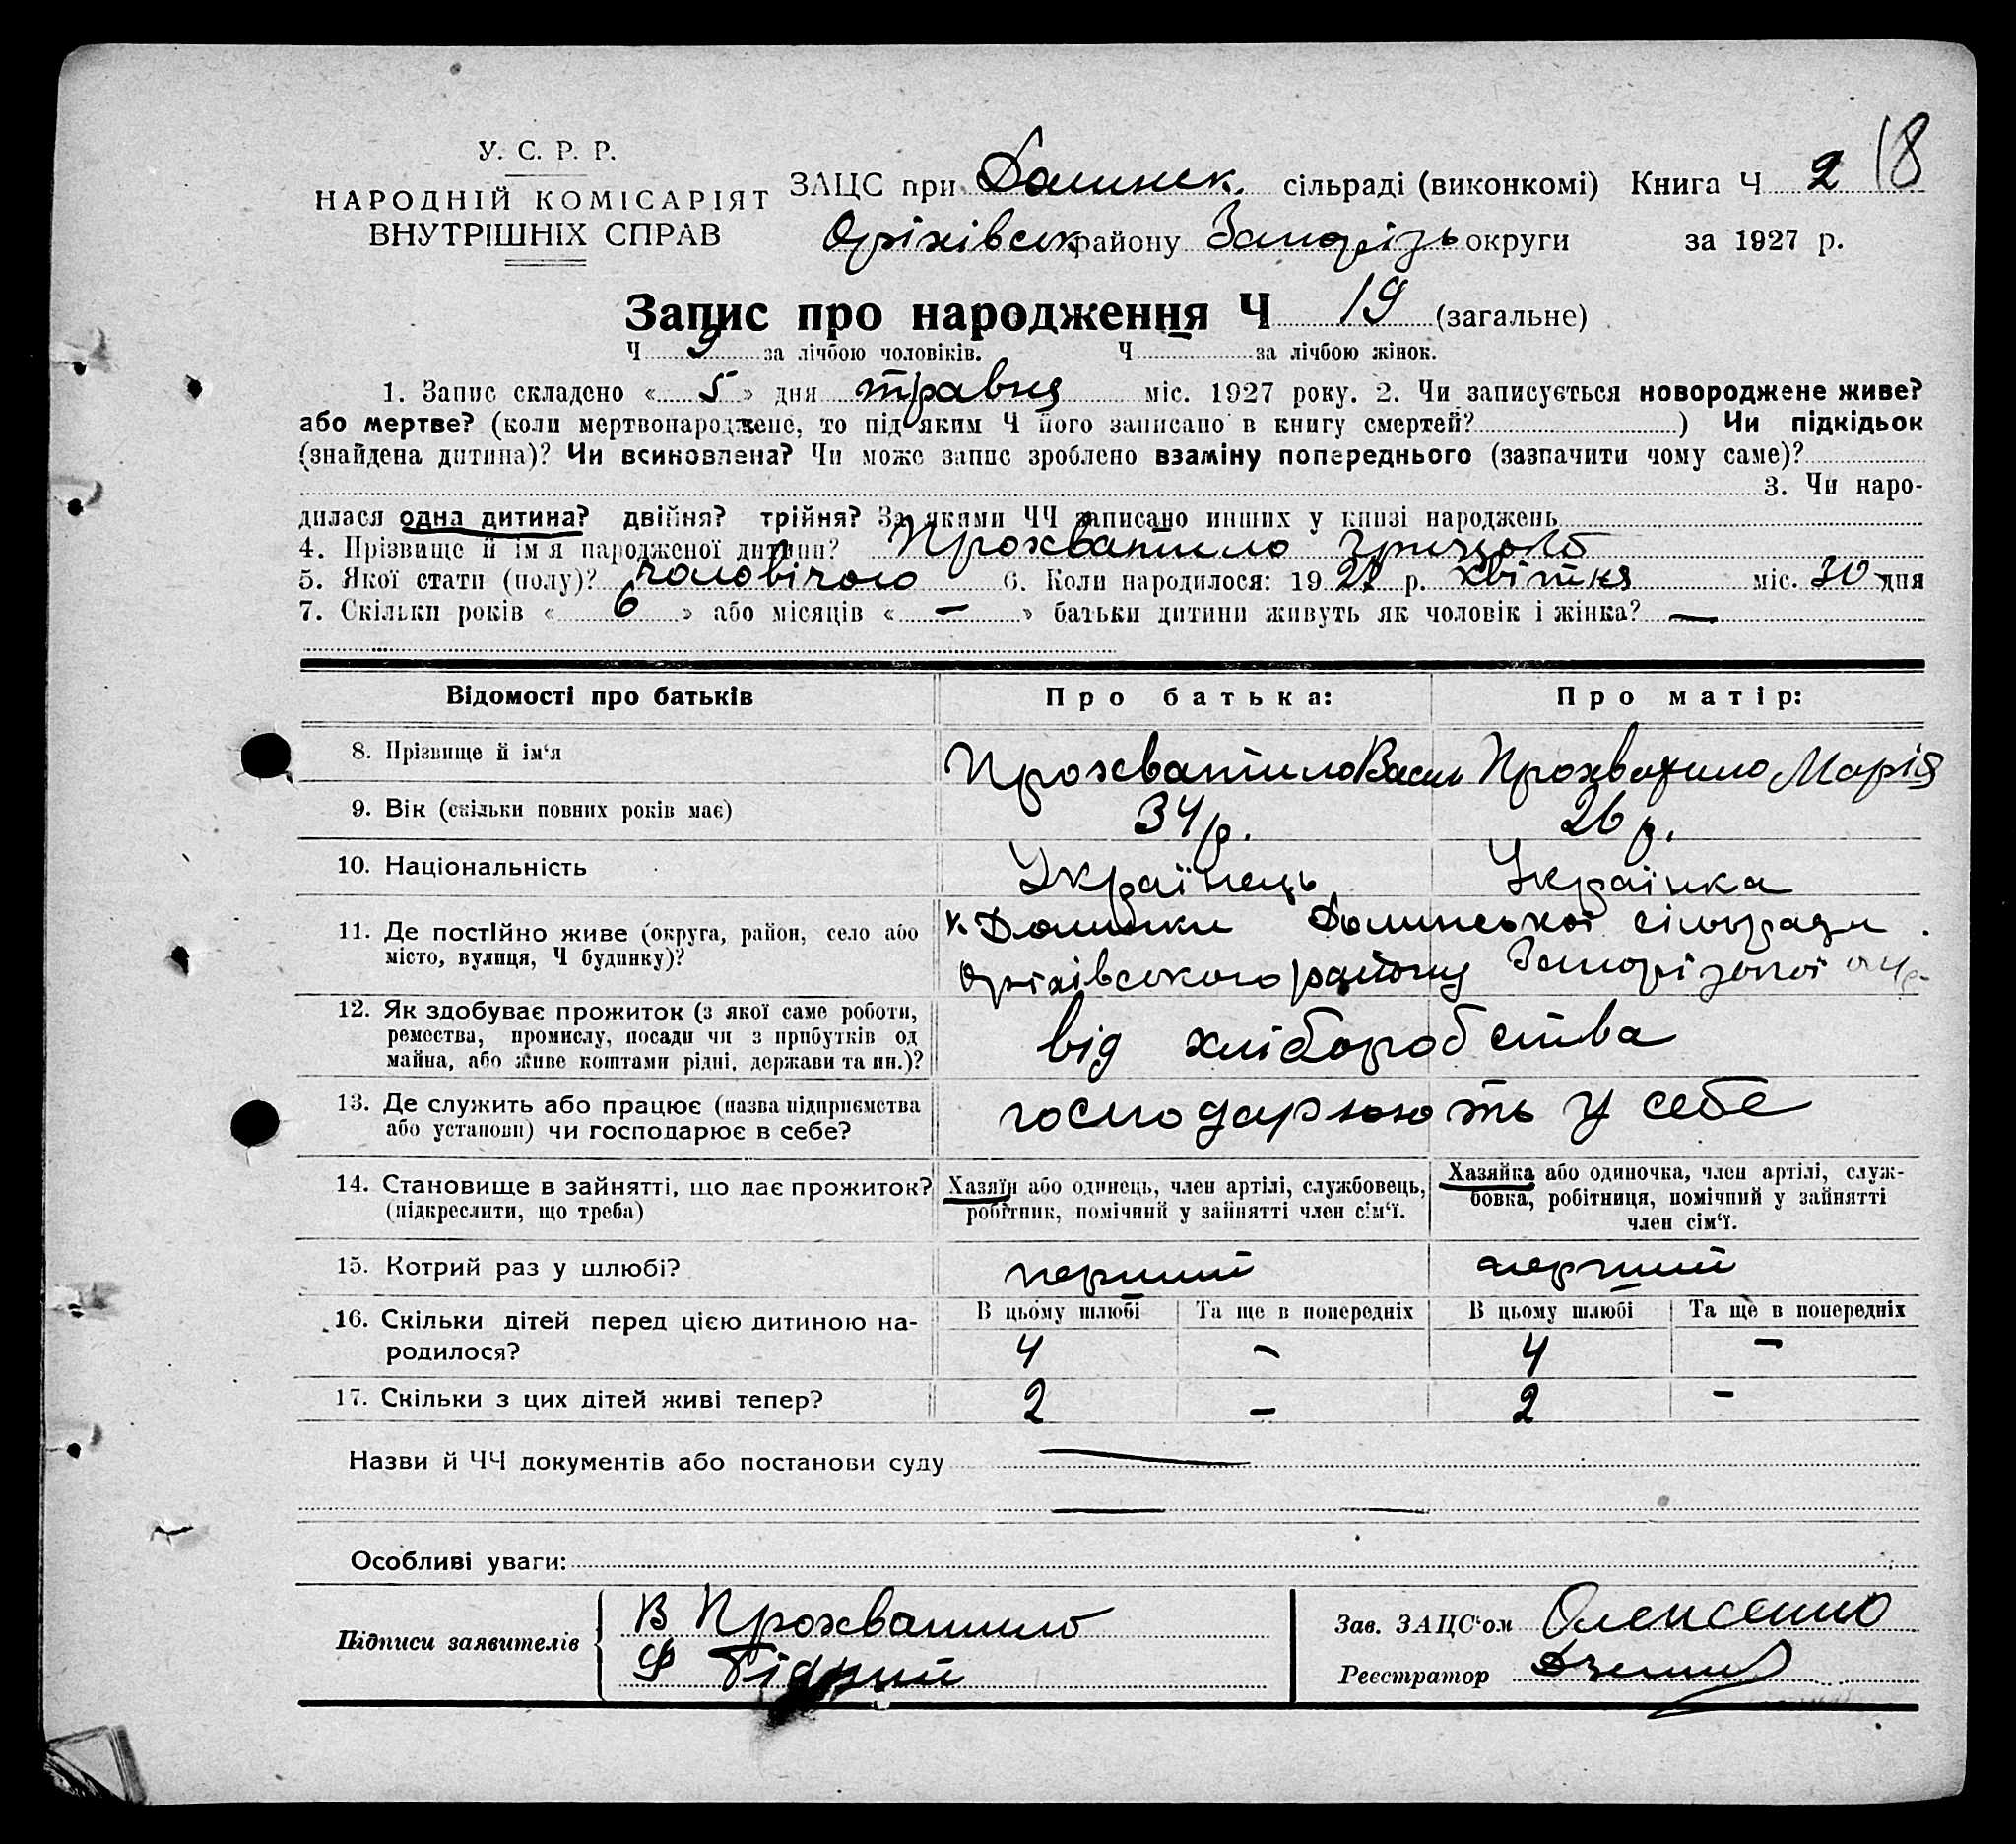 18
У. С. Р. Р.
НАРОДНІЙ КОМІСАРІЯТ
ВНУТРІШНІХ СПРАВ
ЗАЦС при Долинск. сільраді (виконкомі) Книга Ч 2
Оріхівськ району Запорізь округи за 1927 р.
Запис про народження Ч 19 (загальне)
Ч 9 за лічбою чоловіків. Ч – за лічбою жінок.
1. Запис складено « 5 » дня травня міс. 1927 року. 2. Чи записується новороджене живе?
або мертве? (коли мертвонароджене, то під яким Ч його записано в книгу смертей? ) Чи підкідьок
(знайдена дитина)? Чи всиновлена? Чи може запис зроблено взаміну попереднього (зазначити чому саме)?
3. Чи наро-
дилася одна дитина? двійня? трійня? За якими ЧЧ записано инших у книзі народжень
4. Прізвище й ім'я народженої дитини? Прохватило Грицько
5. Якої стати (полу)? чоловічого 6. Коли народилося: 19 27 р. квітня міс. 30 дня
7. Скільки років « 6 » або місяців « – » батьки дитини живуть як чоловік і жінка? –
Відомості про батьків Про батька: Про матір:
8. Прізвище й ім'я Прохватило Василь Прохватило Марія
9. Вік (скільки повних років має) 34 р. 26 р.
10. Національність Українець Українка
11. Де постійно живе (округа, район, село або
місто, вулиця, Ч будинку)?
х. Долинки Долинської сільради
Оріхівського району Запорізької окр.
12. Як здобуває прожиток (з якої саме роботи,
ремества, промислу, посади чи з прибутків од
майна, або живе коштами рідні, держави та ин.)?
від хліборобства
13. Де служить або працює (назва підприємства
або установи) чи господарює в себе?
господарюють у себе
14. Становище в зайнятті, що дає прожиток?
(підкреслити, що треба)
Хазяїн або одинець, член артілі, службовець,
робітник, помічний у зайнятті член сім'ї.
Хазяйка або одиночка, член артілі, служ-
бовка, робітниця, помічний у зайнятті
член сім'ї.
15. Котрий раз у шлюбі? перший перший
16. Скільки дітей перед цією дитиною на-
родилося?
В цьому шлюбі Та ще в попередніх В цьому шлюбі Та ще в попередніх
4 – 4 –
17. Скільки з цих дітей живі тепер? 2 – 2 –
Назви й ЧЧ документів або постанови суду
Особливі уваги:
Підписи заявителів
В Прохватило
Ф Бідний
Зав. ЗАЦС'ом Олексенко
Реєстратор